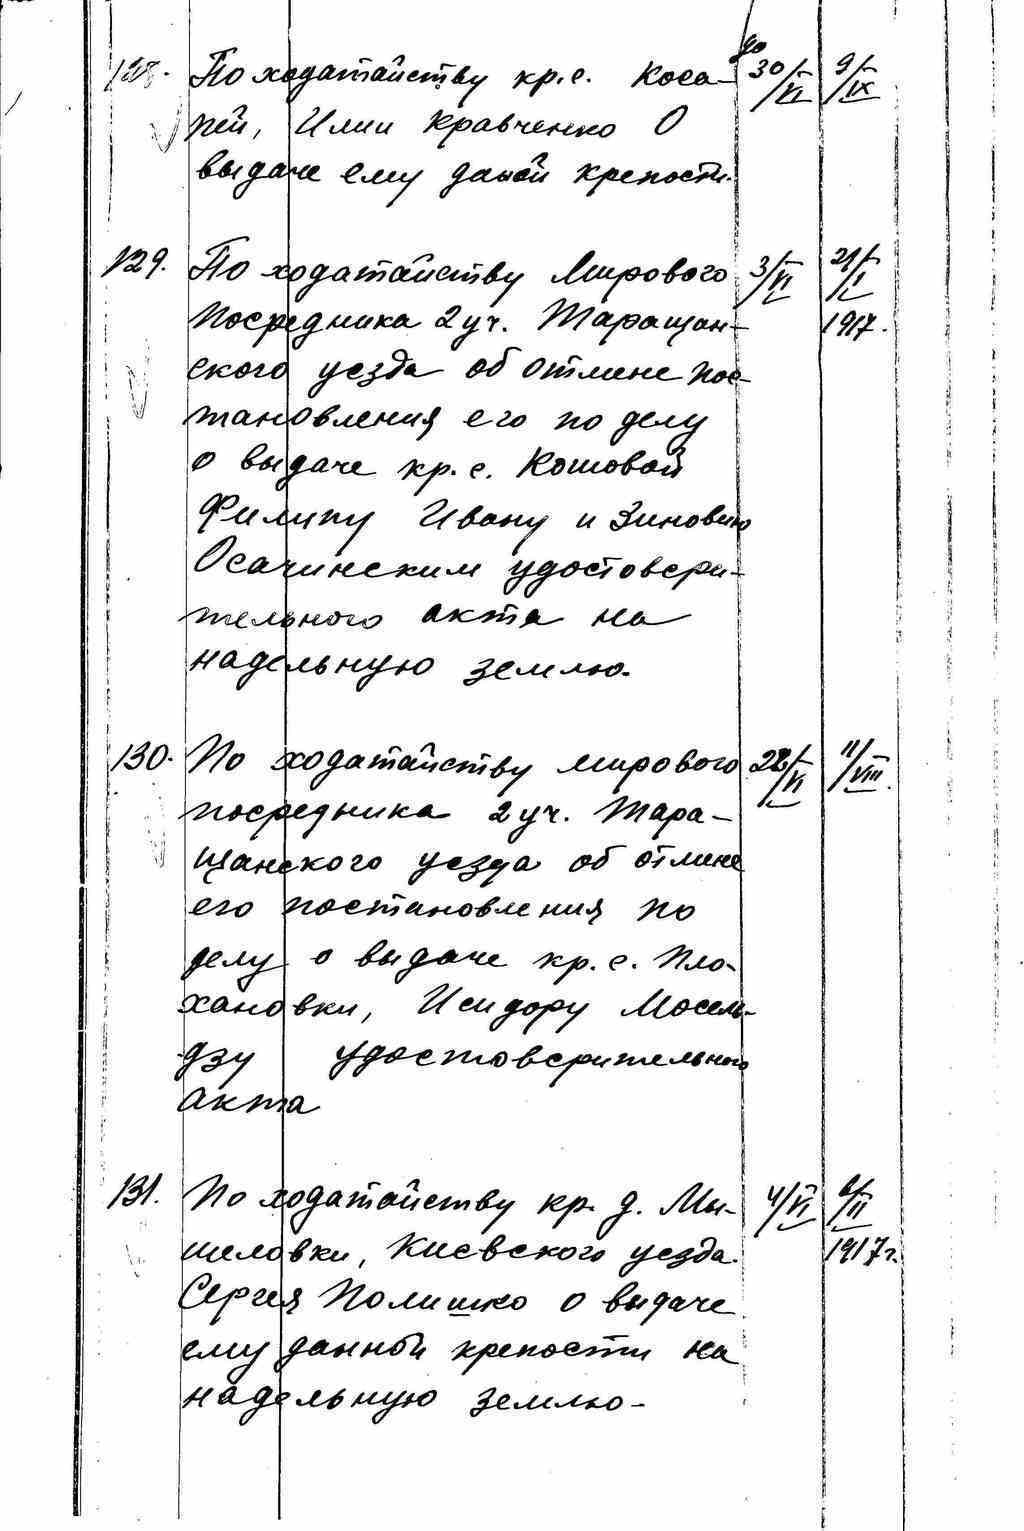 128. По ходатайству кр. с. Коса- до 30/VI 9/IX
пей, Илии Кравченко о
выдаче ему даной крепости.
129. По ходатайству Мирового 3/VI 21/I
Посредника 2 уч. Таращан- 1917.
ского уезда об отмене пос-
тановления его по делу
о выдаче кр. с. Кошовой
Филипу Ивану и Зиновию
Осачинским удостовери-
тельного акта на
надельную землю.
130. По ходатайству мирового 22/VI 11/VIII.
посредника 2 уч. Тара-
щанского уезда об отмене
его постановления по
делу о выдаче кр. с. Пло-
хановки, Исидору Мосень-
дзу удостоверительного
акта
131. По ходатайству кр. д. Мы- 4/VI /II
шеловки, Киевского уезда 1917 г.
Сергея Полишко о выдаче
ему данной крепости на
надельную землю-